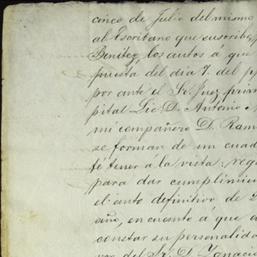 cinco de Julio del mismo
al Escribano que suscribe,
Benitez, los autos á que
puesta del dia 7. del p
por ante el Sr. Juez prim
pital Lic. D. Antonio
mi compañero D. Ram
se forman de un cuad
fé tener á la vista; reg
para dar cumplimien
el auto definitivo de
año, en cuanto á que a
constar su personalida
vor del Sr. D. Ygnacio